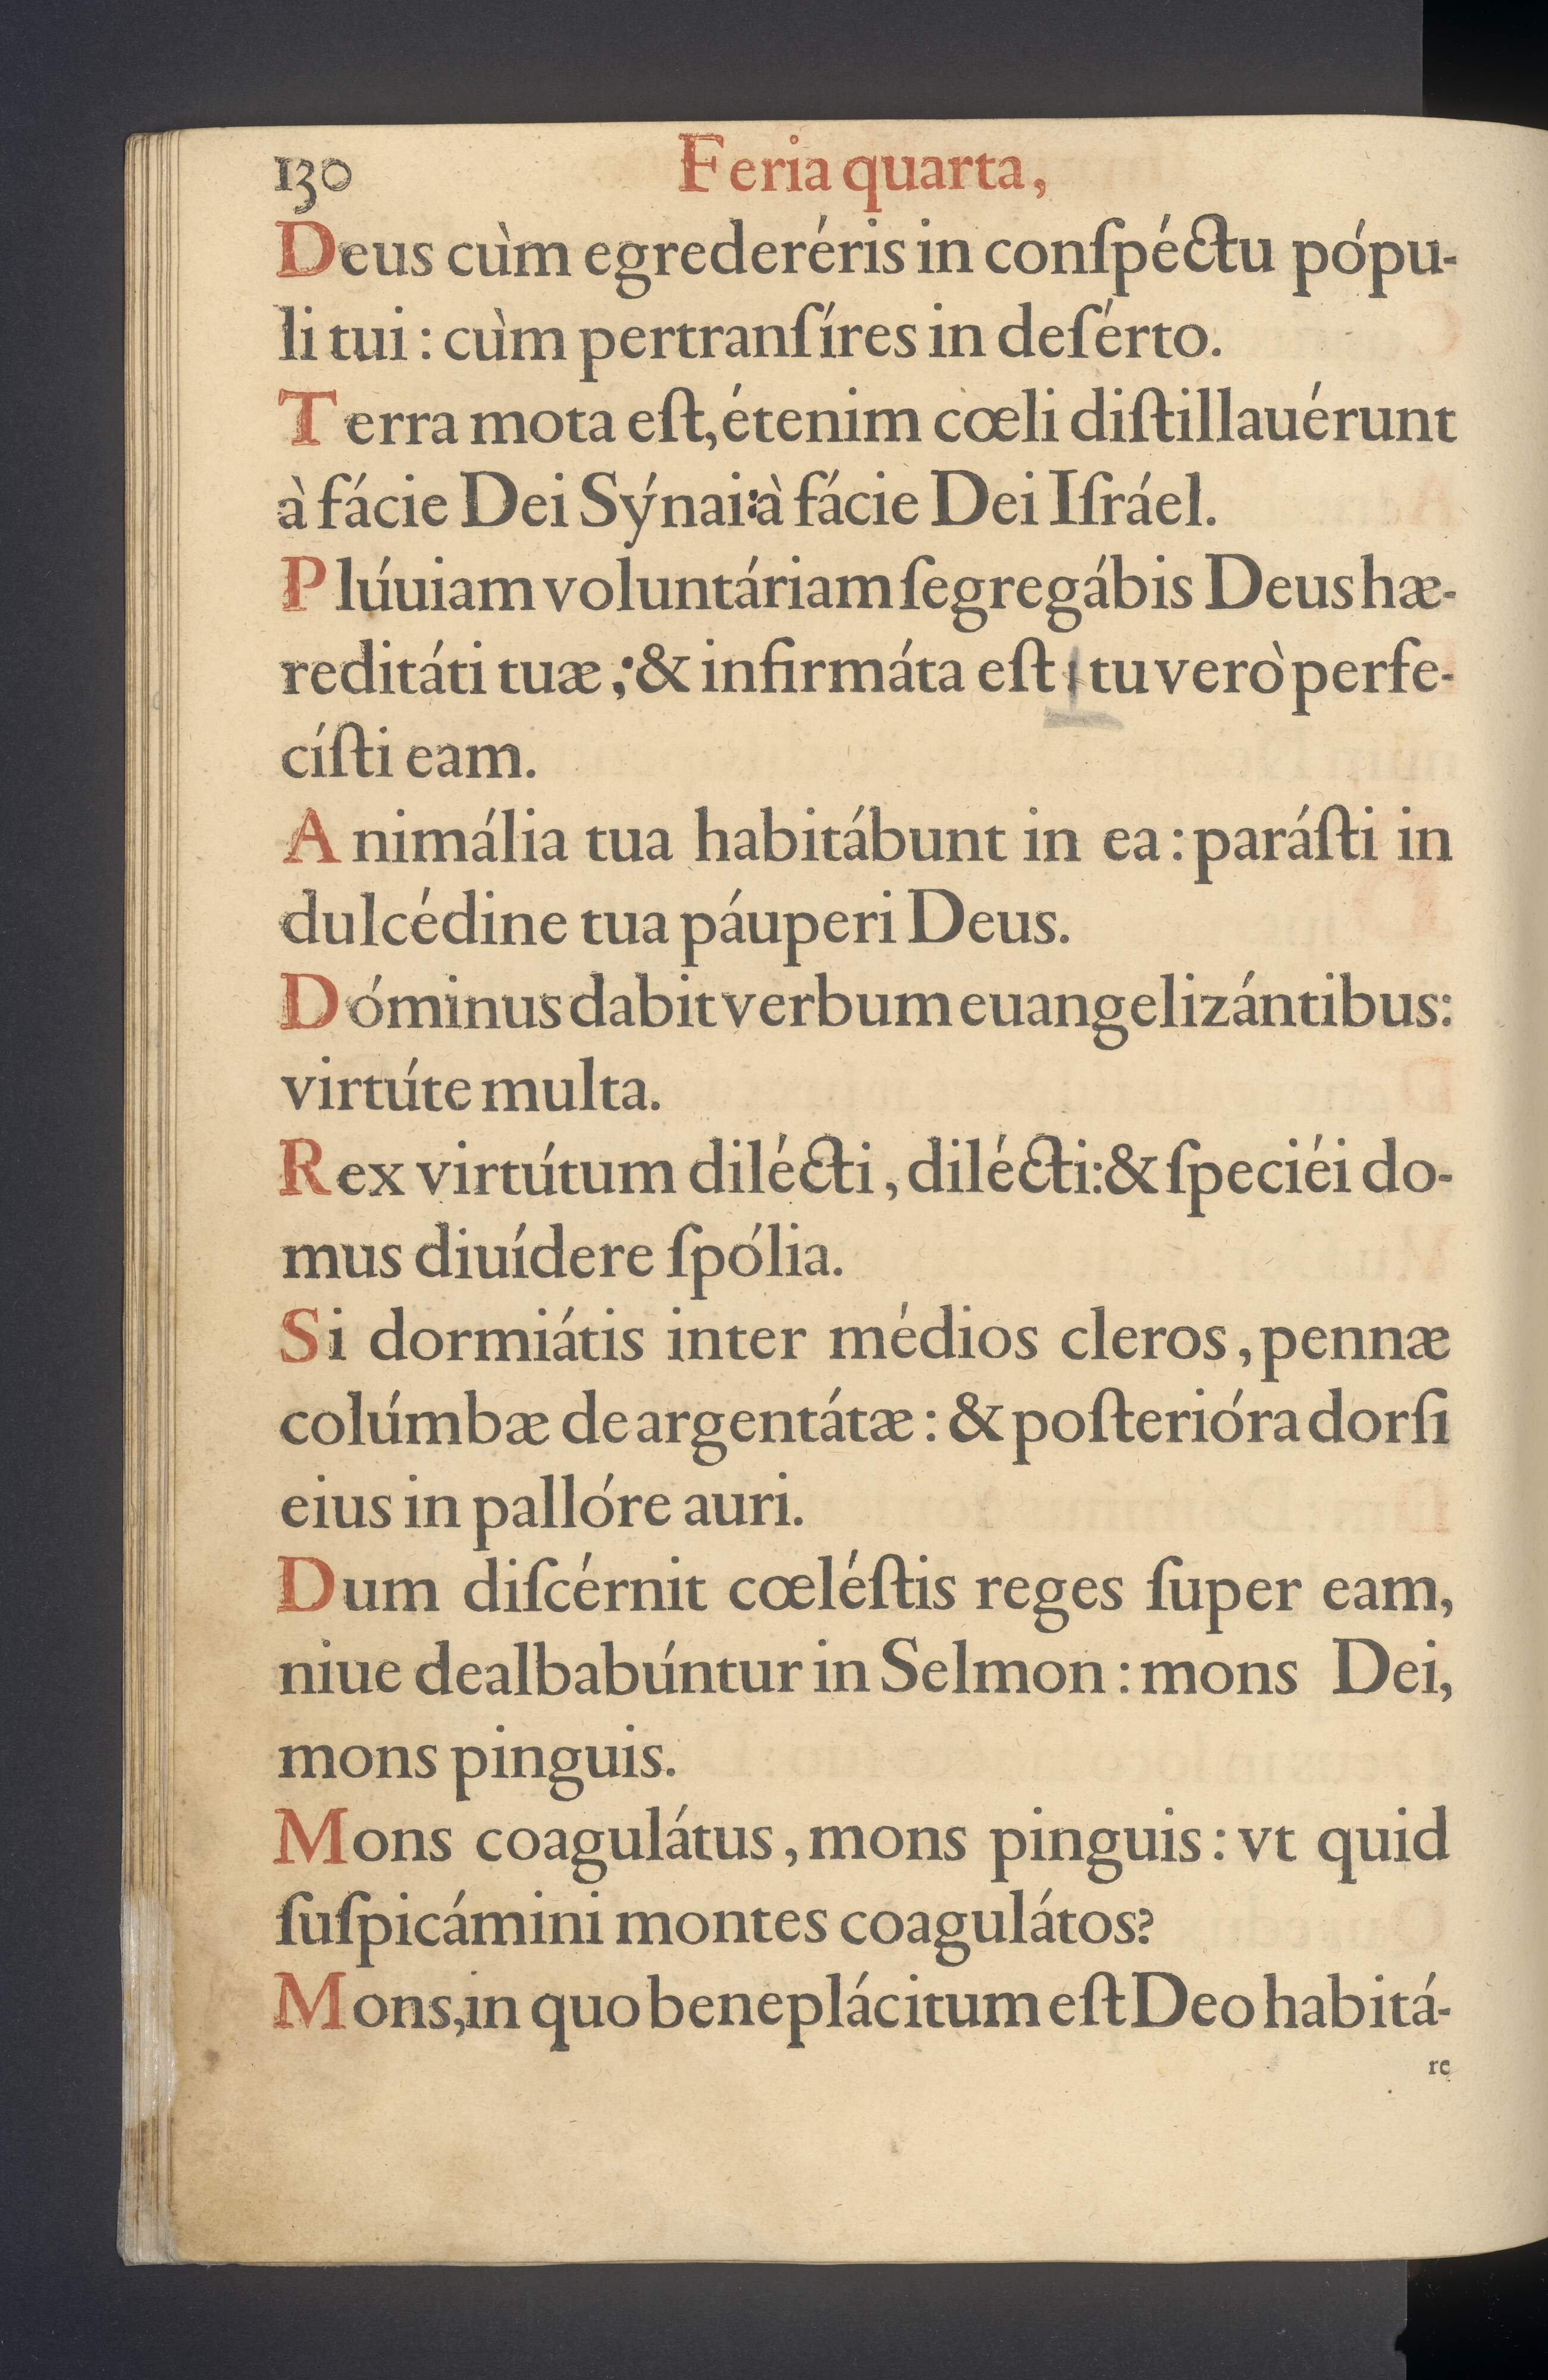 130
Feria quarta,
Deus cùm egrederéris in conſpéctu pópu-
li tui : cùm pertranſíres in deſérto.
Terra mota eſt, étenim cœli diſtillauérunt
à fácie Dei Sýnai: à fácie Dei Iſráel.
Plúuiam voluntáriam ſegregábis Deus hæ-
reditáti tuæ ;: & infirmáta eſt tu verò perfe-
cíſti eam.
Animália tua habitábunt in ea : paráſti in
dulcédine tua páuperi Deus.
Dóminus dabit verbum euangelizántibus:
virtúte multa.
Rex virtútum dilécti , dilécti: & ſpeciéi do-
mus diuídere ſpólia.
Si dormiátis inter médios cleros , pennæ
colúmbæ deargentátæ : & poſterióra dorſi
eius in pallóre auri.
Dum diſcérnit cœléſtis reges ſuper eam,
niue dealbabúntur in Selmon : mons Dei,
mons pinguis.
Mons coagulátus , mons pinguis : vt quid
ſuſpicámini montes coagulátos?
Mons, in quo beneplácitum eſt Deo habitá-
re